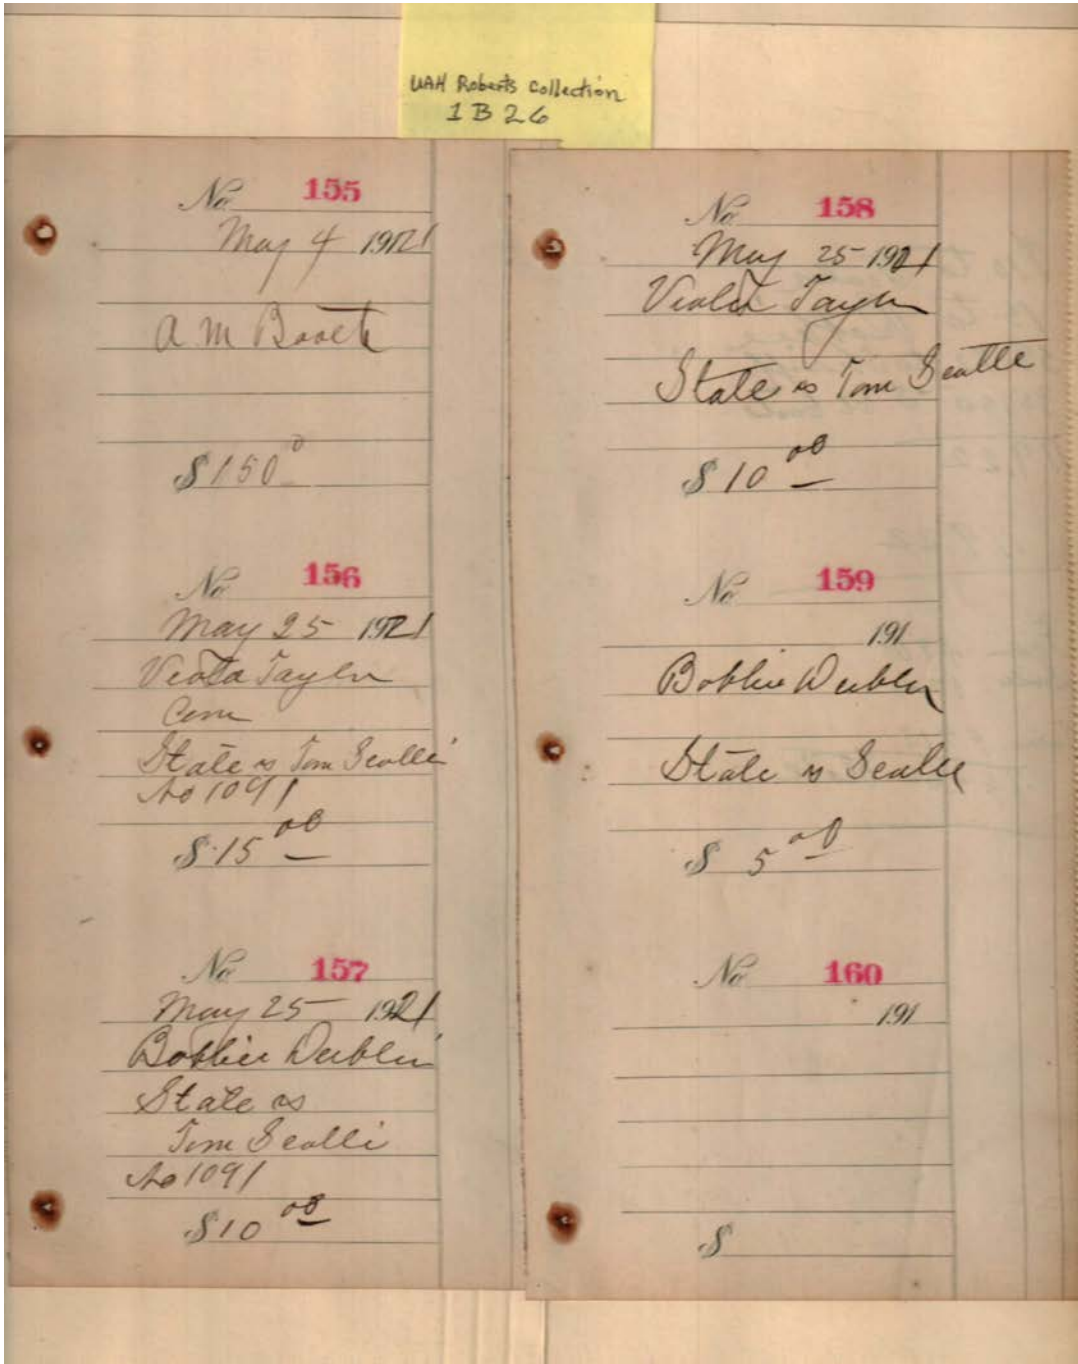 UAH Roberts Collection
1 B 26
No. 155
May 4 1921
A M
$150
No. 156
May 25 1921
Viola Taylor
State vs Tom
No 1091
$15 00
No. 157
May 25 1921
Bobbie
State vs
Tom
No 1091
$10 00
No. 158
May 25 1921
Viola Taylor
State vs Tom Seattle
$10 00
No. 159
191
Bobbie
State vs
$ 5 00
No. 160
191
$